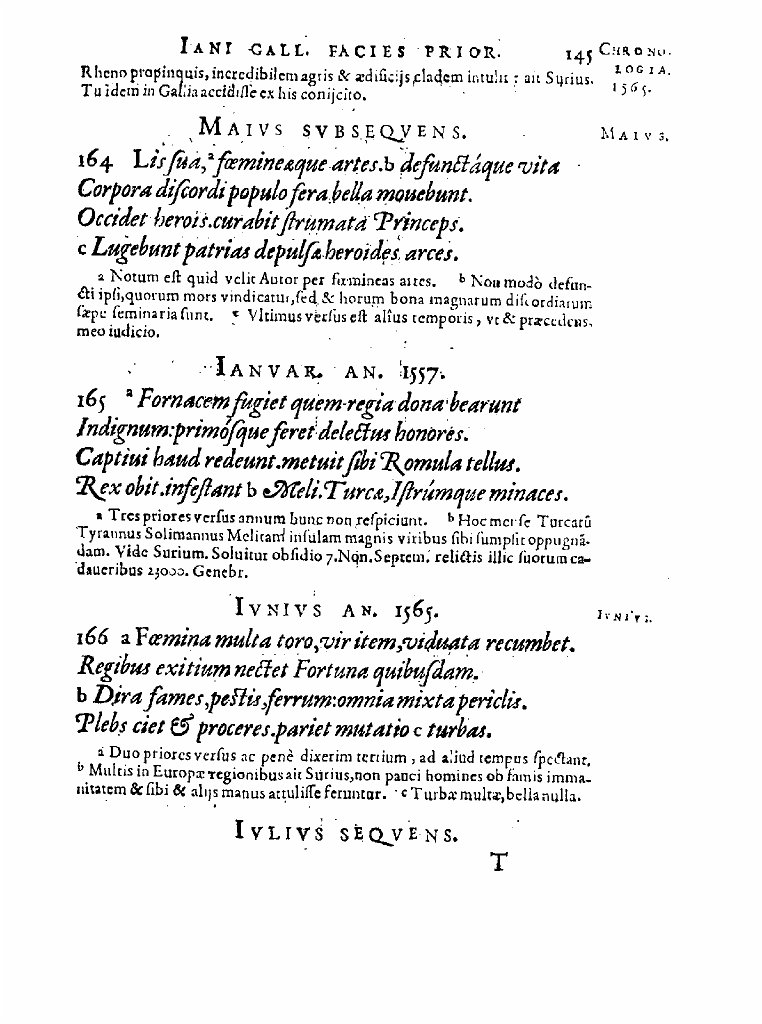 IANI GALL. FACIES PRIOR. 145
CHRONO-
LOGIA.
1565.
Rheno propinquis, incredibilem agris & ædificijs cladem intulit : ait Surius.
Tu idem in Gallia accidisse ex his conijcito.
MAIVS SVBSEQVENS.
MAIVS.
164 Lis sua, a fœmineæque artes. b defunctáque vita
Corpora discordi populo fera bella mouebunt.
Occidet herois. curabit strumata Princeps.
c Lugebunt patrias depulsæ heroides arces.
a Notum est quid velit Autor per fœmineas artes. b Non modò defun-
cti ipsi, quorum mors vindicatur, sed & horum bona magnarum discordiarum
sæpe seminaria sunt. c Vltimus versus est alius temporis, vt & præcedens,
meo iudicio.
IANVAR. AN. 1557.
165 a Fornacem fugiet quem regia dona bearunt
Indignum: primósque feret delectus honores.
Captiui haud redeunt. metuit sibi Romula tellus.
Rex obit. infestant b Meli. Turcæ, Istrúmque minaces.
a Tres priores versus annum hunc non respiciunt. b Hoc mense Turcarū
Tyrannus Solimannus Melitam insulam magnis viribus sibi sumpsit oppugnā-
dam. Vide Surium. Soluitur obsidio 7. Non. Septem. relictis illic suorum ca-
daueribus 23000. Genebr.
IVNIVS AN. 1565.
IVNIVS.
166 a Fœmina multa toro, vir item, viduata recumbet.
Regibus exitium nectet Fortuna quibusdam.
b Dira fames, pestis, ferrum: omnia mixta periclis.
Plebs ciet & proceres. pariet mutatio c turbas.
a Duo priores versus ac penè dixerim tertium, ad aliud tempus spectant.
b Multis in Europæ regionibus ait Surius, non pauci homines ob famis imma-
nitatem & sibi & alijs manus attulisse feruntur. c Turbæ multæ, bella nulla.
IVLIVS SEQVENS.
T